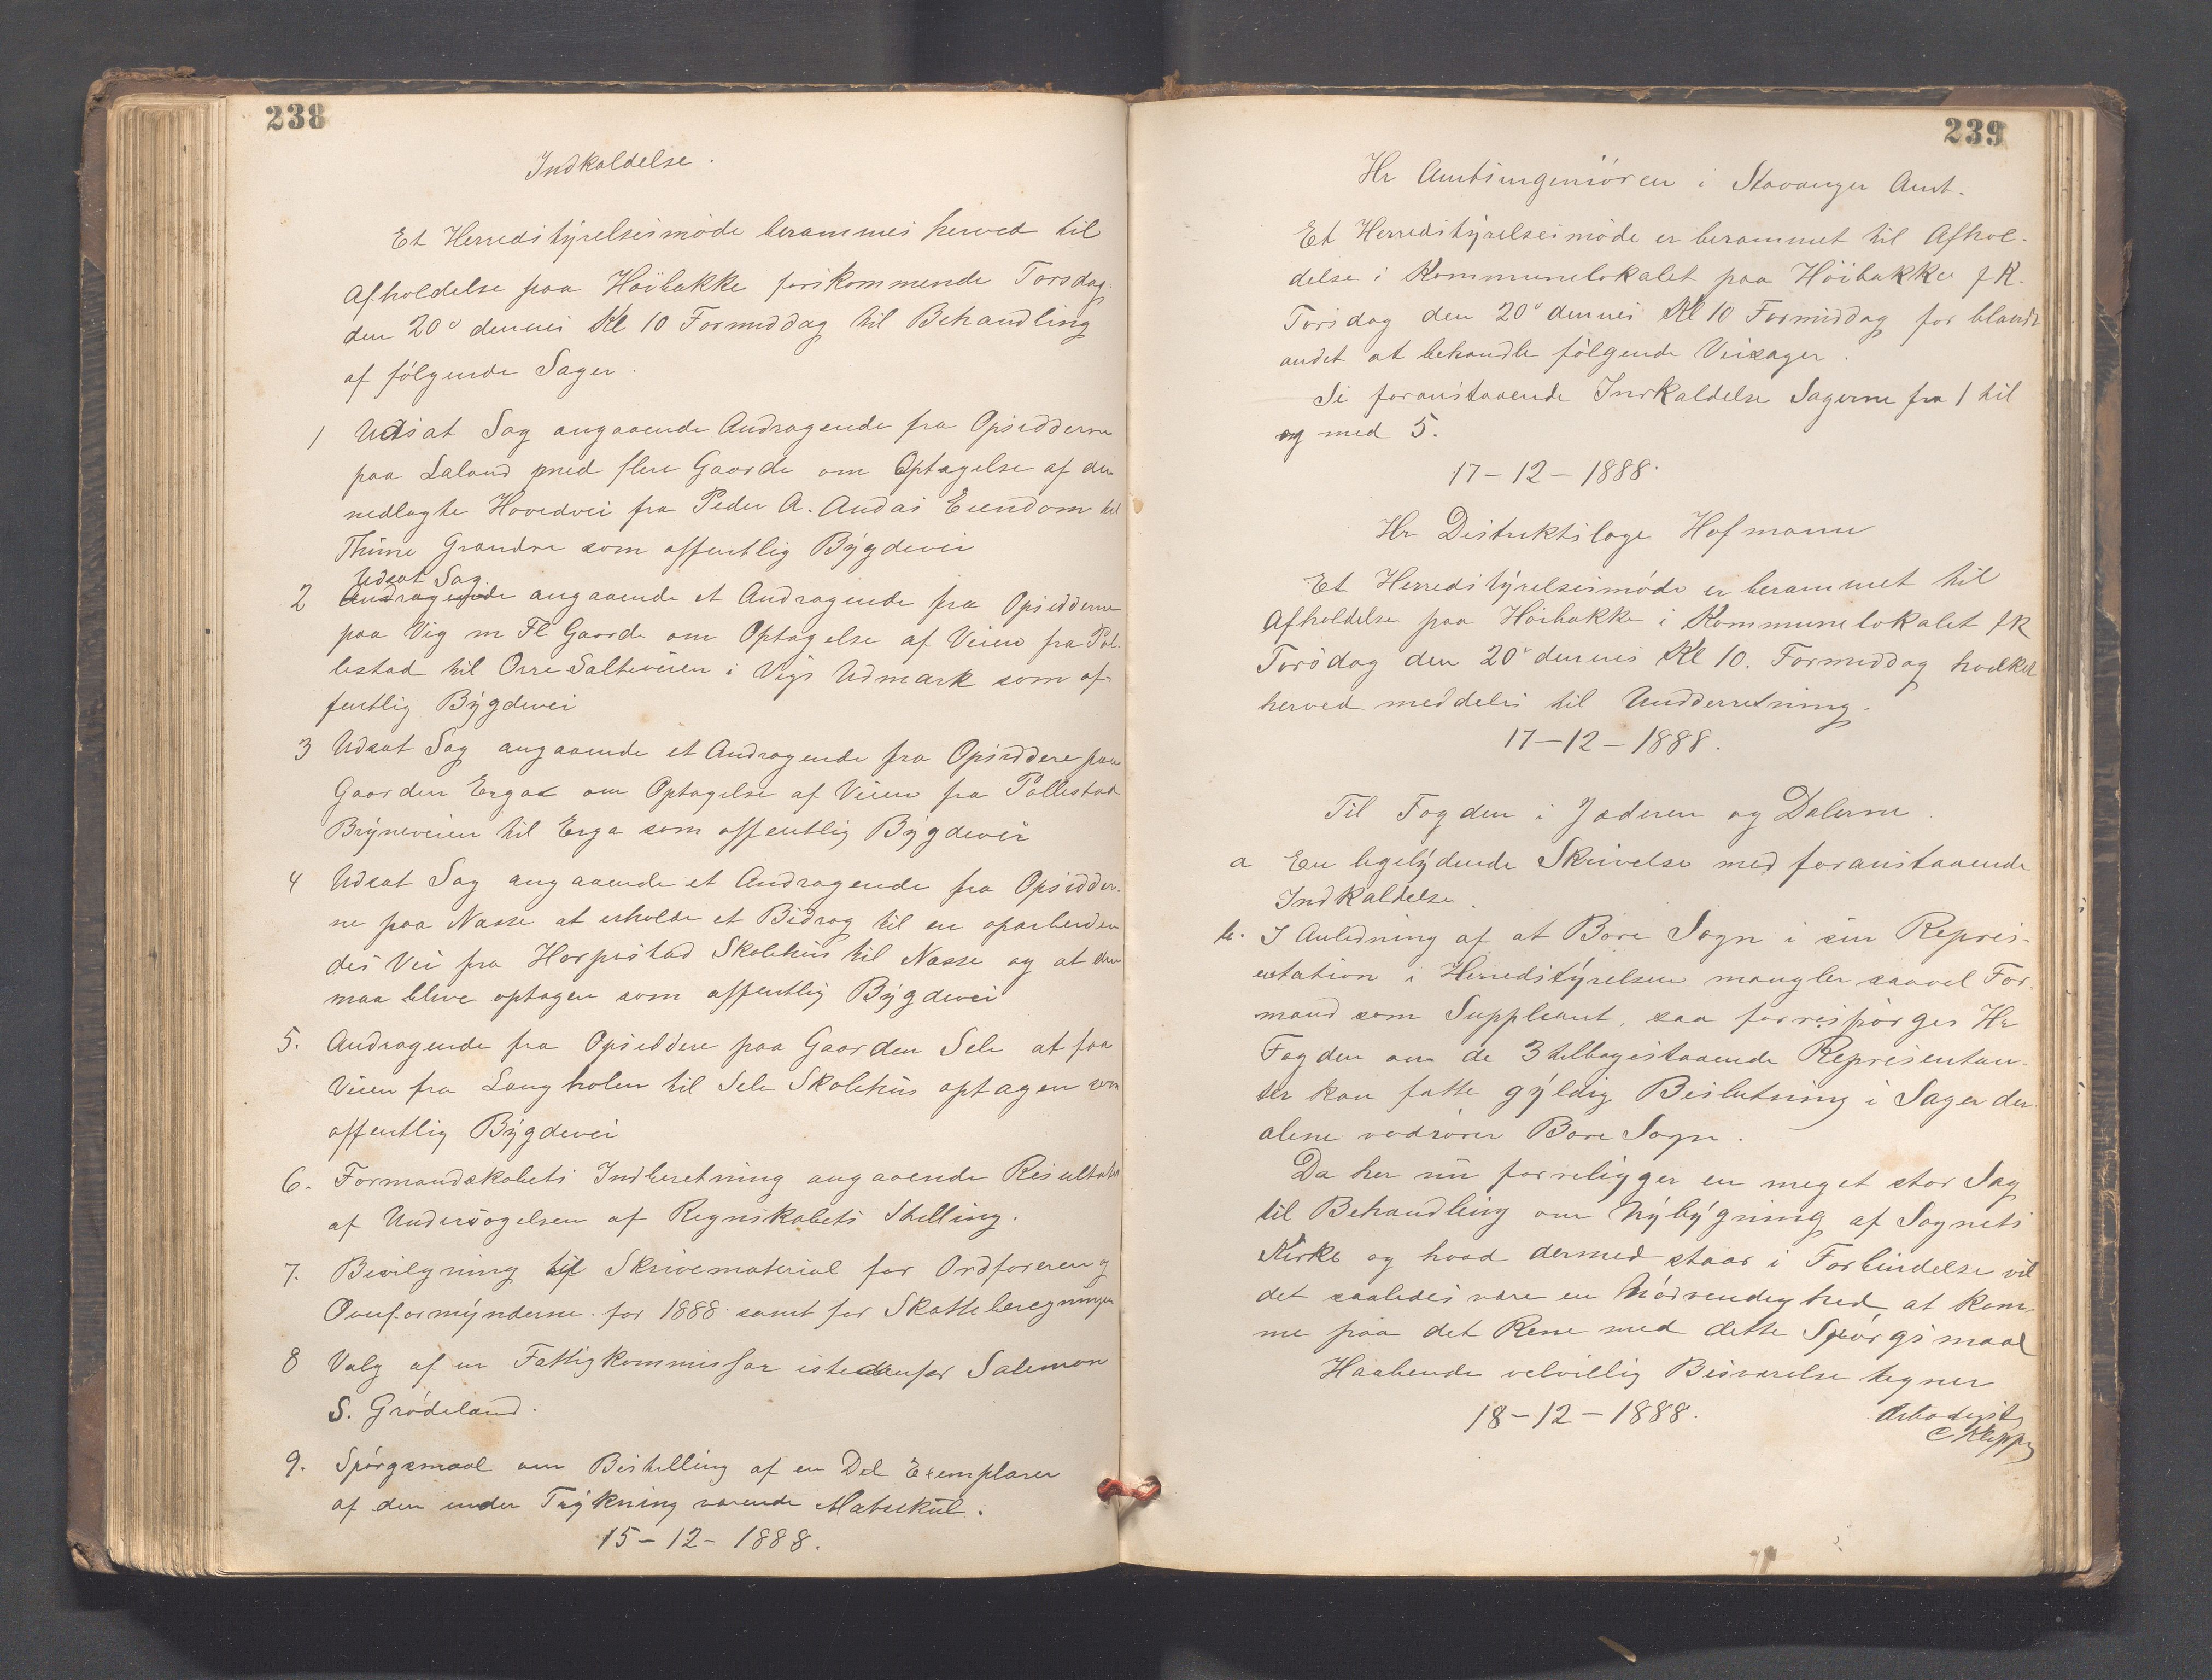 238
Indkaldelse.
Et Herredstyrelsesmøde berammes herved til
Afholdelse paa Høibakke førskommende Torsdag
den 20de dennes Kl 10 Formiddag til Behandling
af følgende Sager.
1 Udsat Sag angaaende Andragende fra Opsidderne
paa Laland med flere Gaarde om Optagelse af den
nedlagte Hovedvei fra Peder A. Andas Eiendom til
Thime Grændse som offentlig Bygdevei
Udsat Sag.
2 Andragende angaaende et Andragende fra Opsidderne
paa Vig m Fl Gaarde om Optagelse af Veien fra Pol-
lestad til Orre Salteveien i Vigs Udmark som of-
fentlig Bygdevei
3 Udsat Sag angaaende et Andragende fra Opsiddere paa
Gaarden Erga om Optagelse af Veien fra Pollestad
Bryneveien til Erga som offentlig Bygdevei
4 Udsat Sag angaaende et Andragende fra Opsidder-
ne paa Nasse at erholde et Bidrag til en oparbeiden
des Vei fra Horpestad Skolehus til Nasse og at den
maa blive optagen som offentlig Bygdevei
5. Andragende fra Opsiddere paa Gaarden Sele at faa
Veien fra Langholen til Sele Skolehus optagen som
offentlig Bygdevei
6. Formandskabets Indberetning angaaende Resultatet
af Undersøgelsen af Regnskabets Stilling.
7. Bevilgning til Skrivematerial for Ordføreren og
Overformynderne for 1888 samt for Skatteberegningen
8 Valg af en Fattigkommissær istedenfor Salemon
S. Grødeland.
9. Spørgsmaal om Bestilling af en Del Exemplarer
af den under Trykning værende Matrikul.
15-12-1888.
239
Hr Amtsingeniøren i Stavanger Amt.
Et Herredstyrelsesmøde er berammet til Afhol-
delse i Kommunelokalet paa Høibakke f K.
Torsdag den 20de dennes Kl 10 Formiddag for blandt
andet at behandle følgende Veisager.
Se foranstaaende Indkaldelse Sagerne fra 1 til
og med 5.
17-12-1888.
Hr Distriktslæge Hofmann
Et Herredstyrelsesmøde er berammet til
Afholdelse paa Høibakke i Kommunelokalet f K
Torsdag den 20de dennes Kl 10. Formiddag hvilket
herved meddeles til Underretning.
17-12-1888.
Til Fogden i Jæderen og Dalerne.
a En ligelydende Skrivelse med foranstaaende
Indkaldelse.
b. I Anledning af at Bore Sogn i sin Repres-
entation i Herredstyrelsen mangler saavel For-
mand som Suppleant, saa forrespørges Hr
Fogden om de 3 tilbagestaaende Representan-
ter kan fatte gyldig Beslutning i Sager der
alene vedrører Bore Sogn.
Da her nu forreligger en meget stor Sag
til Behandling om Nybygning af Sognets
Kirke og hvad dermed staar i Forbindelse vil
det saaledes være en Nødvendighed at kom-
me paa det Rene med dette Spørgsmaal
Haabende velvillig Besvarelse tegner
18-12-1888.
Ærbødigst
C Klepp